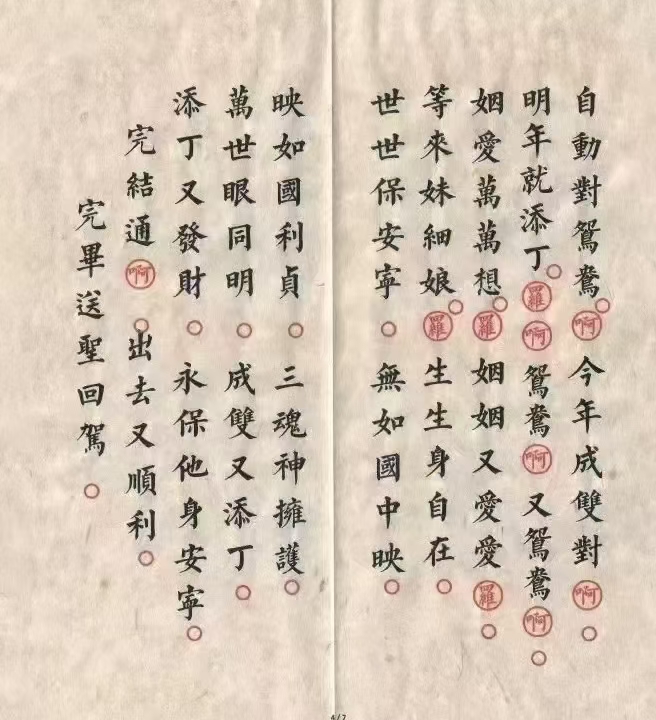 自動對鴛鴦。啊 今年成雙對啊。
明年就添丁。羅啊 鴛鴦啊 又鴛鴦啊。
姻愛萬萬想。羅 姻姻又愛愛羅。
等來妹細娘。羅 生生身自在。
世世保安寧。無如國中映。
映如國利貞。三魂神擁護。
萬世眼同明。成雙又添丁。
添丁又發財。永保他身安寧。
完結通啊。出去又順利。
完畢送聖回駕。
4/7